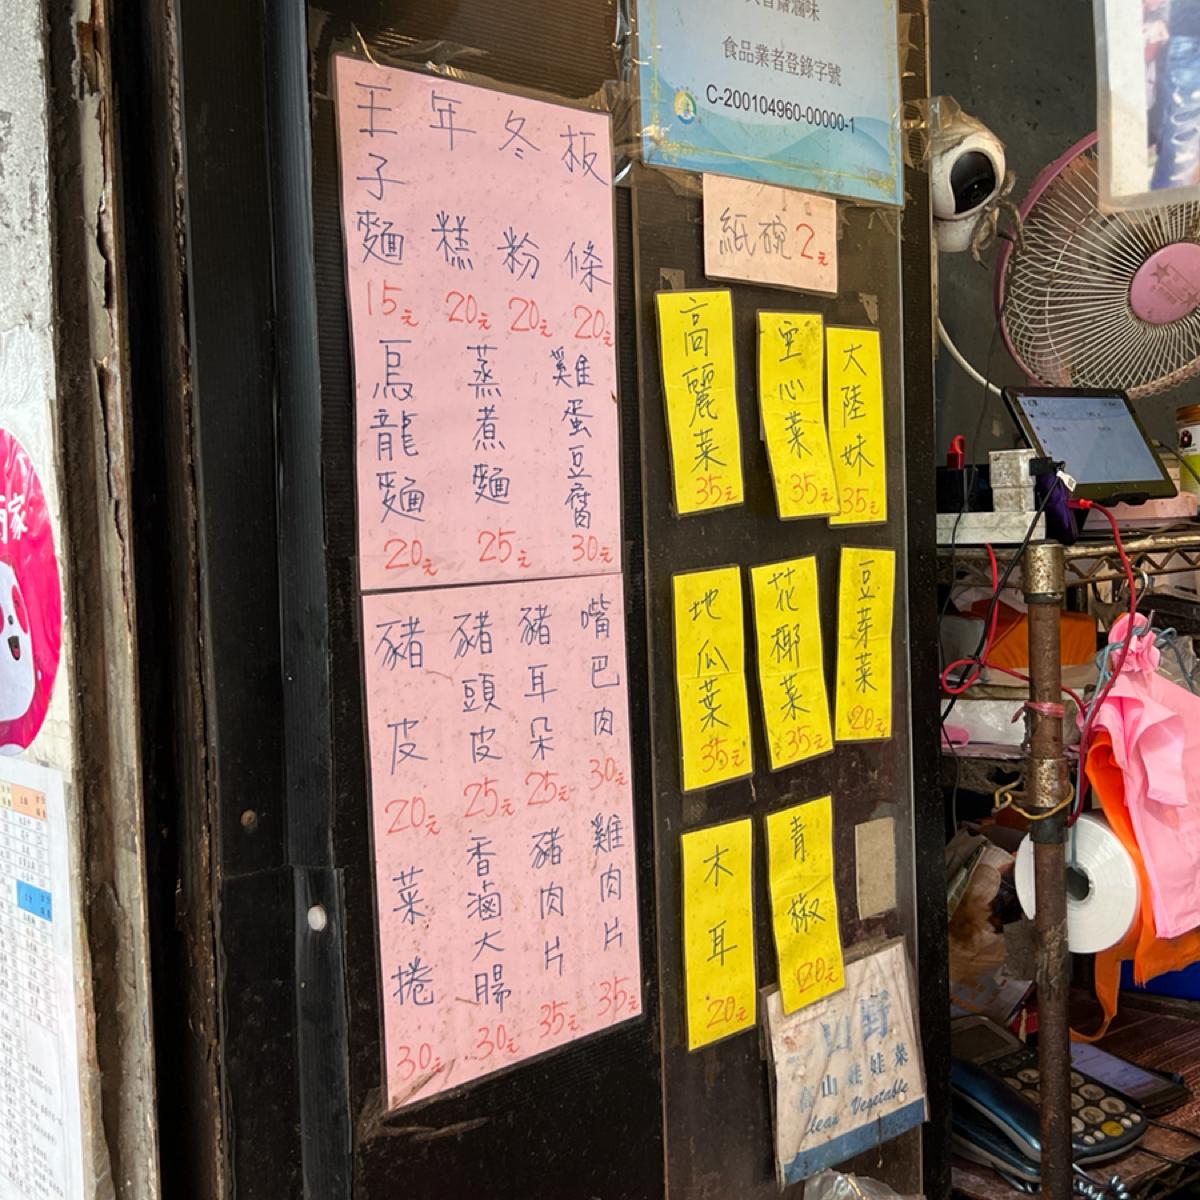 板條 20元
冬粉 20元
年糕 20元
王子麵 15元
雞蛋豆腐 30元
蒸煮麵 25元
烏龍麵 20元
嘴巴肉 30元
豬耳朵 25元
豬頭皮 25元
豬皮 20元
雞肉片 35元
豬肉片 35元
香滷大腸 30元
菜捲 30元
滷味
食品業者登錄字號
C-200104960-00000-1
紙碗 2元
高麗菜 35元
空心菜 35元
大陸妹 35元
地瓜葉 35元
花椰菜 35元
豆芽菜 20元
木耳 20元
青椒 20元
山野
山娃娃菜
Clean Vegetable
家